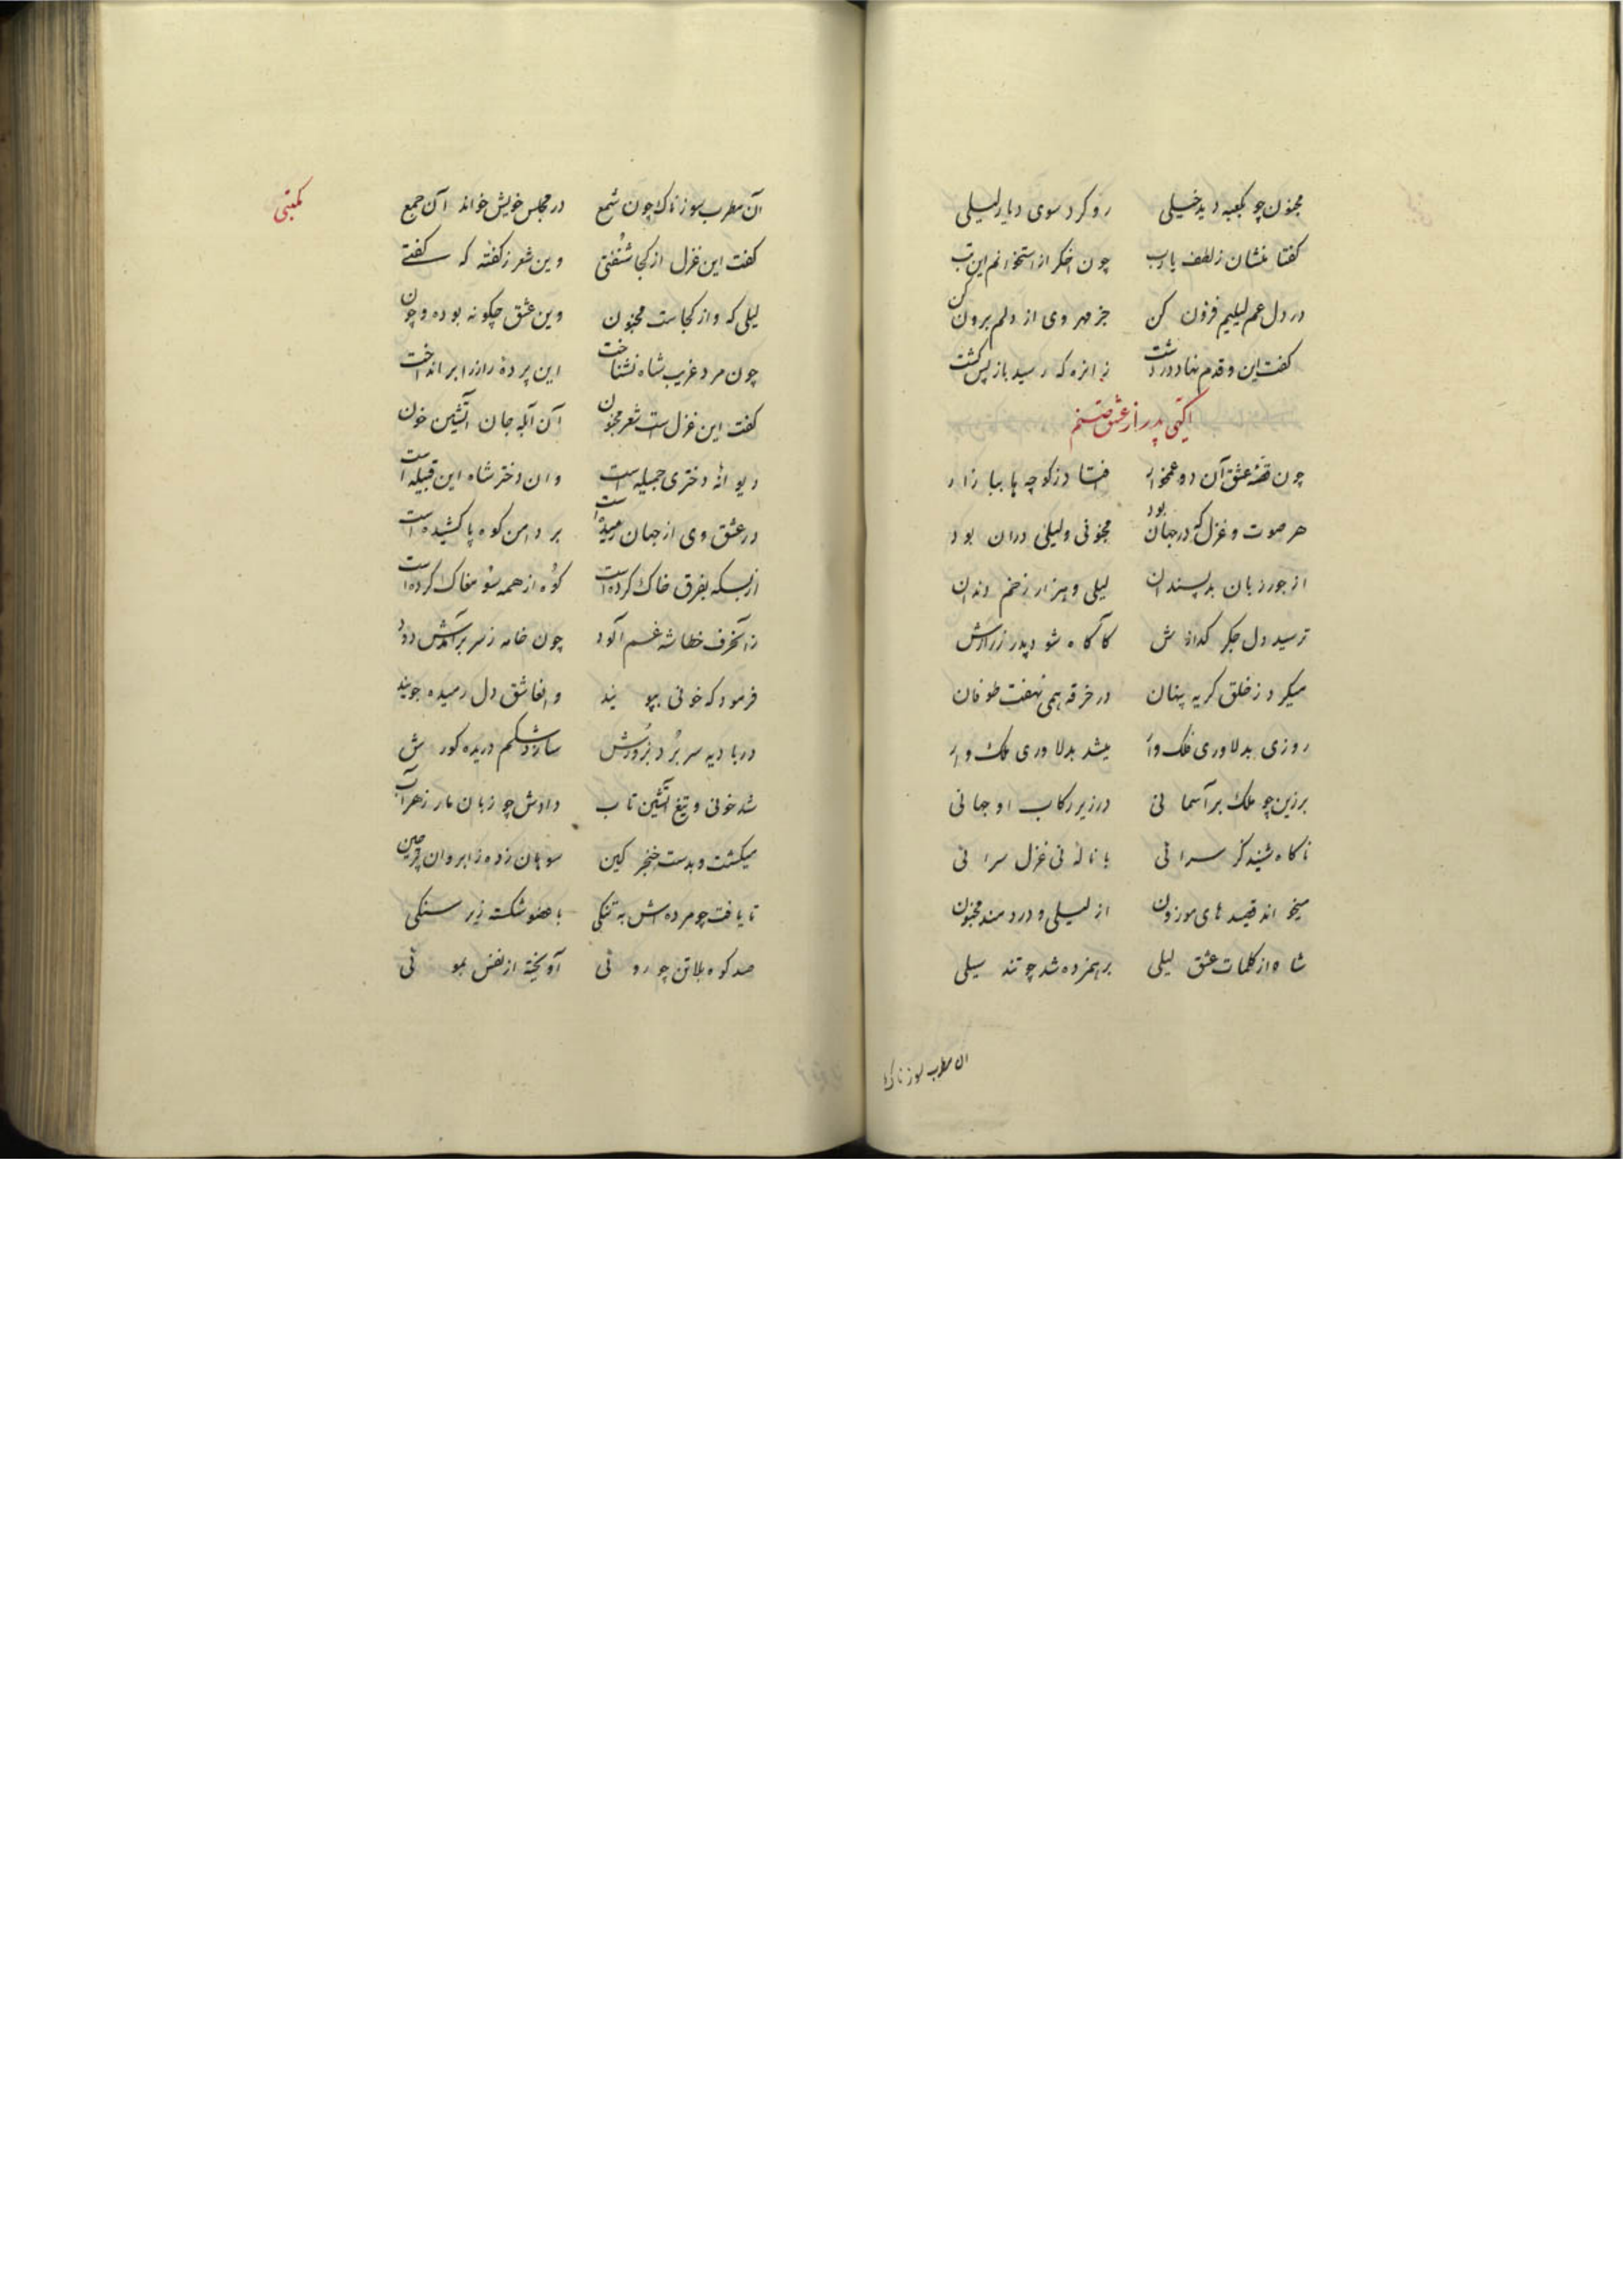 مجنون چو بکعبه دید خیلی رو کرد سوی دیار لیلی
گفتا بنشان ز لطف یارب چون اخکر از استخوانم این تب
در دل غم لیلیم فزون کن جز مهر وی از دلم برون کن
گفت این و قدم نهاد در دشت زانره که رسید باز پس گشت
اکهی پدر از عشق صنم
چون قصه عشق آن دو غمخوار افتاد ز کوچه ها ببازار
هر صوت و غزل که در جهان بود مجنونی و لیلی دران بود
از جور زبان بد پسندان لیلی و هزار زخم دندان
ترسید دل جکر کدازش کآکاه شود پدر ز رازش
میکرد ز خلق کریه پنهان در خرقه همی نهفت طوفان
روزی بدلاوری فلک وار میشد بدلاوری ملک وار
بر زین چو ملک بر آسمانی در زیر رکاب او جهانی
ناکاه شنید کز سرائی با ناله نی غزل سرائی
میخواند قصیدهای موزون از لیلی و دردمند مجنون
شاه از کلمات عشق لیلی بر همزده شد چو تند سیلی
ان مطرب سوزناک
مکتبی
آن مطرب سوزناک چون شمع در مجلس خویش خواند آن جمع
کفت این غزل از کجا شنفتی وین شعر ز کفته که کفتی
لیلی که و از کجاست مجنون وین عشق چکونه بوده و چون
چون مرد غریب شاه نشناخت این پرده راز را برانداخت
کفت این غزل است شعر مجنون آن آبله جان آتشین خون
دیوانه دختری جمیله است وان دختر شاه این قبیله است
در عشق وی از جهان رمیده است بر دامن کوه پا کشیده است
از بسکه بفرق خاک کرده است کوه از همه سو مغاک کرده است
زانحرف خطا شه غم آلود چون خامه ز سر برآمدش دود
فرمود که خونی بپویند وانعاشق دل رمیده جویند
در بادیه سر برد بزورش سازد شکم دریده کورش
شد خونی و تیغ آتشین تاب دادش چو زبان مار زهر آب
میکشت و بدست خنجر کین سوهان زده ز ابروان پرچین
تا یافت چو مرده اش به تنکی با عضو شکست زیر سنکی
صد کوه بلا تن چو روئی آویخته از نفس بموئی